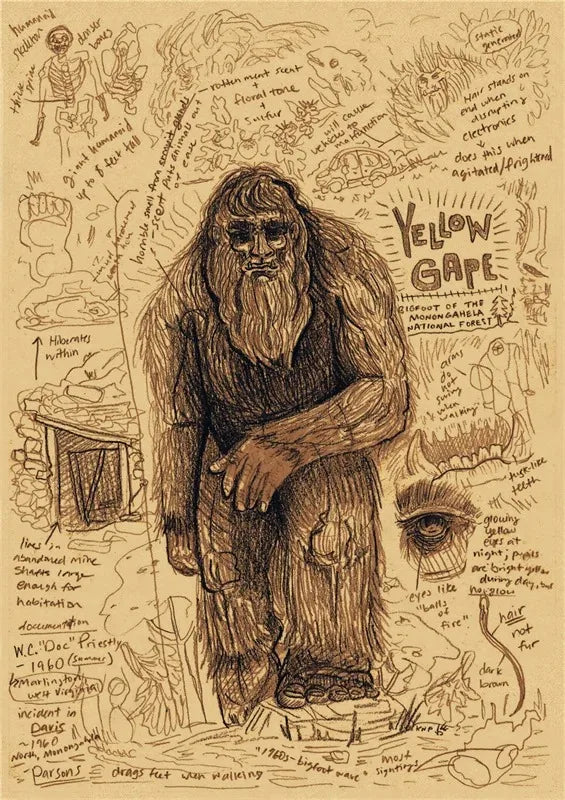 humanoid
skeleton
denser
bones
thick spine
giant humanoid
up to 8 feet tall
- rotten meat scent
+
floral tone
+
sulfur
horrible smell from
- scent puts animals
will cause
vehicles to
malfunction
static
generated
Hair stands on
end when
disrupting
electronics
does this when
agitated/frightened
YELLOW
GAPE
BIGFOOT OF THE
MONONGAHELA
NATIONAL FOREST
arms
do
not
swing
when
walking
tusk-like
teeth
glowing
yellow
eyes at
night; pupils
are bright yellow
during day, but
no glow
eyes like
"balls
of
fire"
hair
not
fur
dark
brown
Hibernates
within
lives in
abandoned mine
shafts large
enough for
habitation
documentation
W.C. "Doc" Priestly
- 1960 (summer)
(Marlington,
west Virginia)
incident in
Davis
~ 1960
North, Monongahela
- Parsons
drags feet when walking
"1960s - bigfoot wave"
most
sightings